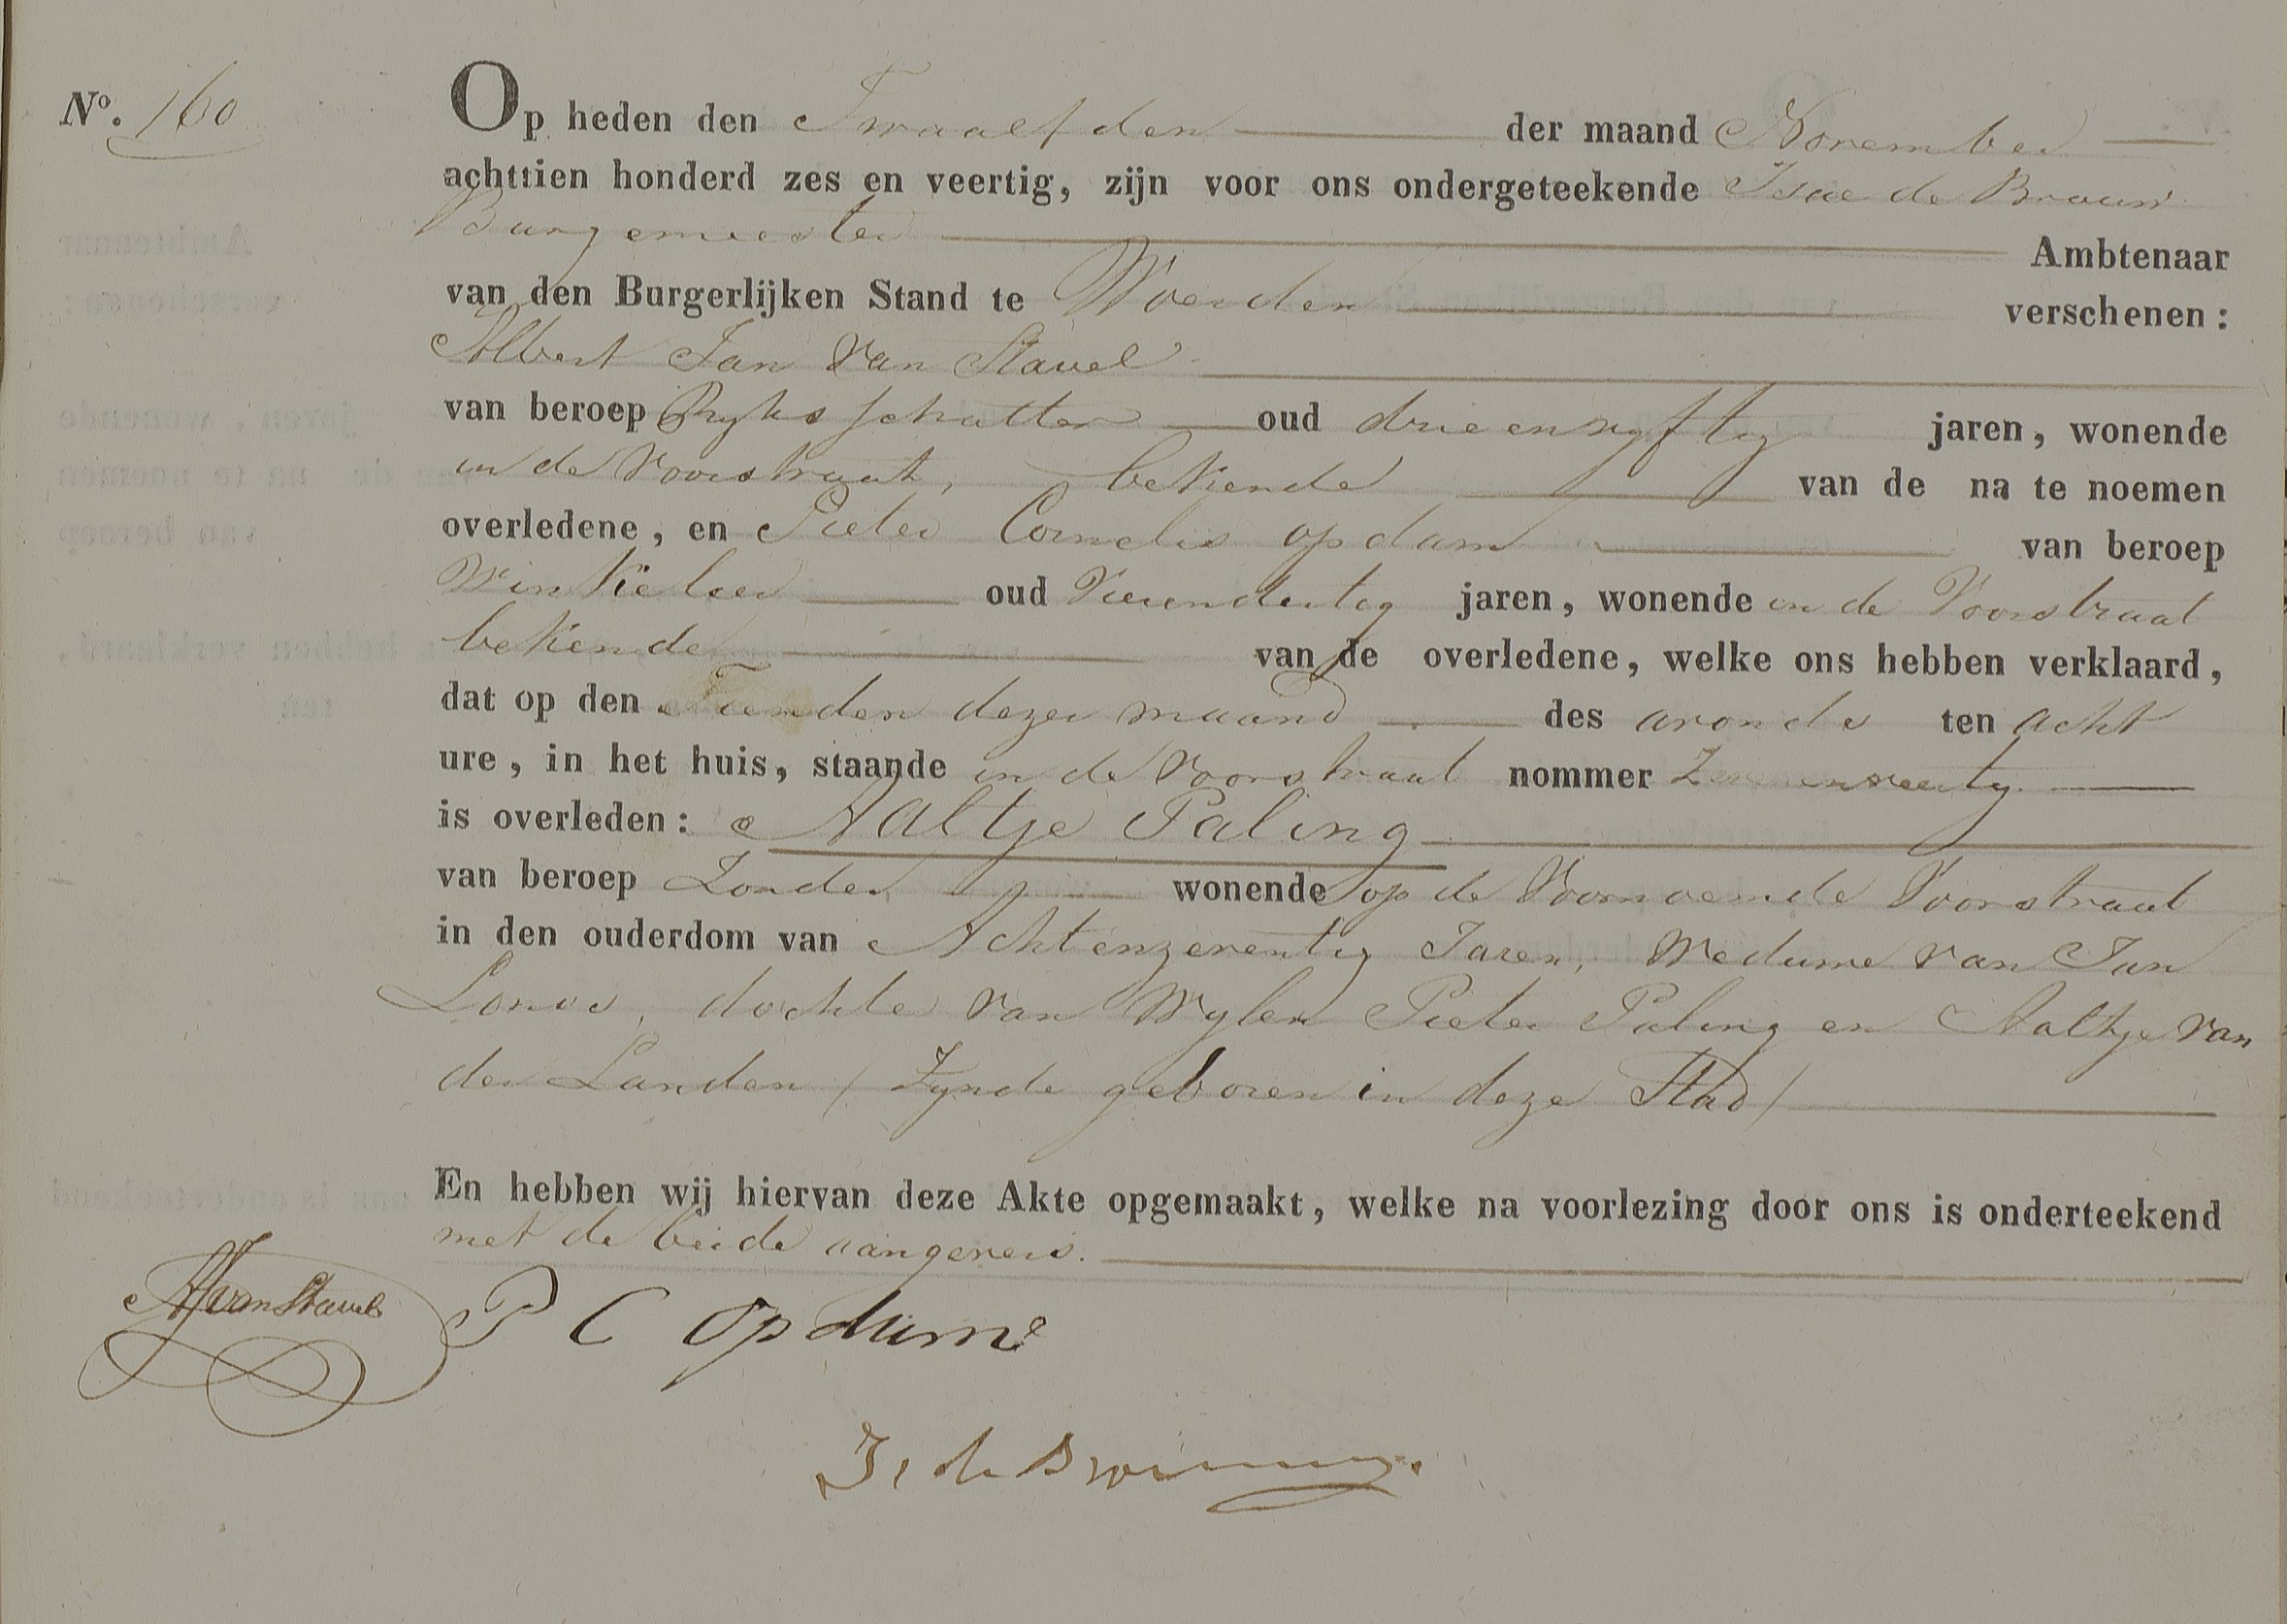 No. 160
Op heden den Twaalfden der maand November
achttien honderd zes en veertig, zijn voor ons ondergeteekende Isac de Brauw
Burgemeester Ambtenaar
van den Burgerlijken Stand te Woerden verschenen:
Albert Jan van Stavel
van beroep Ryks schatter oud drieenvyftig jaren, wonende
in de Voorstraat, bekende van de na te noemen
overledene, en Pieter Cornelis opdam van beroep
Winkelier oud Vierendertig jaren, wonende in de Voorstraat
bekende van de overledene, welke ons hebben verklaard,
dat op den Tienden dezer maand des avonds ten acht
ure, in het huis, staande in de Voorstraat nommer
is overleden: Aaltje Paling
van beroep Zonder wonende op de Voornoemde Voorstraat
in den ouderdom van Achtenzeventig Jaren, Weduwe van Jan
dochter van Wylen Pieter Paling en Aaltje van
der Landen / Zynde geboren in deze Stad /
En hebben wij hiervan deze Akte opgemaakt, welke na voorlezing door ons is onderteekend
met de beide aangevers.
AJ van Stavel
P C Opdam
Is de Brauw